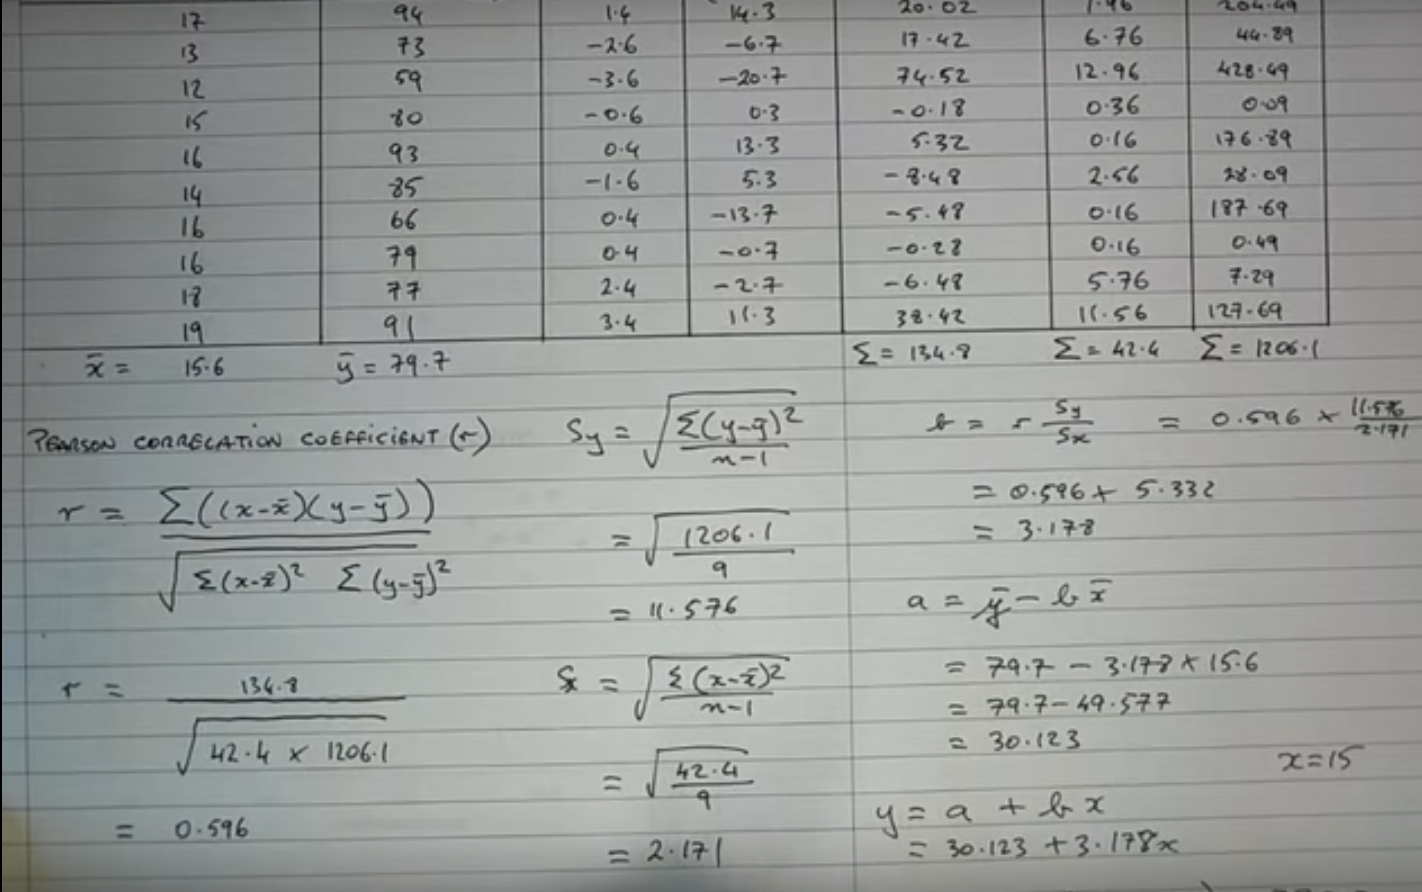 17 94 1.4 14.3 20.02 1.96 204.49
13 73 -2.6 -6.7 17.42 6.76 44.89
12 59 -3.6 -20.7 74.52 12.96 428.49
15 80 -0.6 0.3 -0.18 0.36 0.09
16 93 0.4 13.3 5.32 0.16 176.89
14 85 -1.6 5.3 -8.48 2.56 28.09
16 66 0.4 -13.7 -5.48 0.16 187.69
16 79 0.4 -0.7 -0.28 0.16 0.49
18 77 2.4 -2.7 -6.48 5.76 7.29
19 91 3.4 11.3 38.42 11.56 127.69
x̄ = 15.6 ȳ = 79.7 Σ = 134.8 Σ = 42.4 Σ = 1206.1
PEARSON CORRELATION COEFFICIENT (r)
r = Σ((x-x̄)(y-ȳ)) / √(Σ(x-x̄)² Σ(y-ȳ)²)
r = 134.8 / √(42.4 × 1206.1)
= 0.596
Sy = √(Σ(y-ȳ)² / n-1)
= √(1206.1 / 9)
= 11.576
Sx = √(Σ(x-x̄)² / n-1)
= √(42.4 / 9)
= 2.171
b = r Sy/Sx = 0.596 × 11.576/2.171
= 0.596 × 5.332
= 3.178
a = ȳ - bx̄
= 79.7 - 3.178 × 15.6
= 79.7 - 49.577
= 30.123
x = 15
y = a + bx
= 30.123 + 3.178x